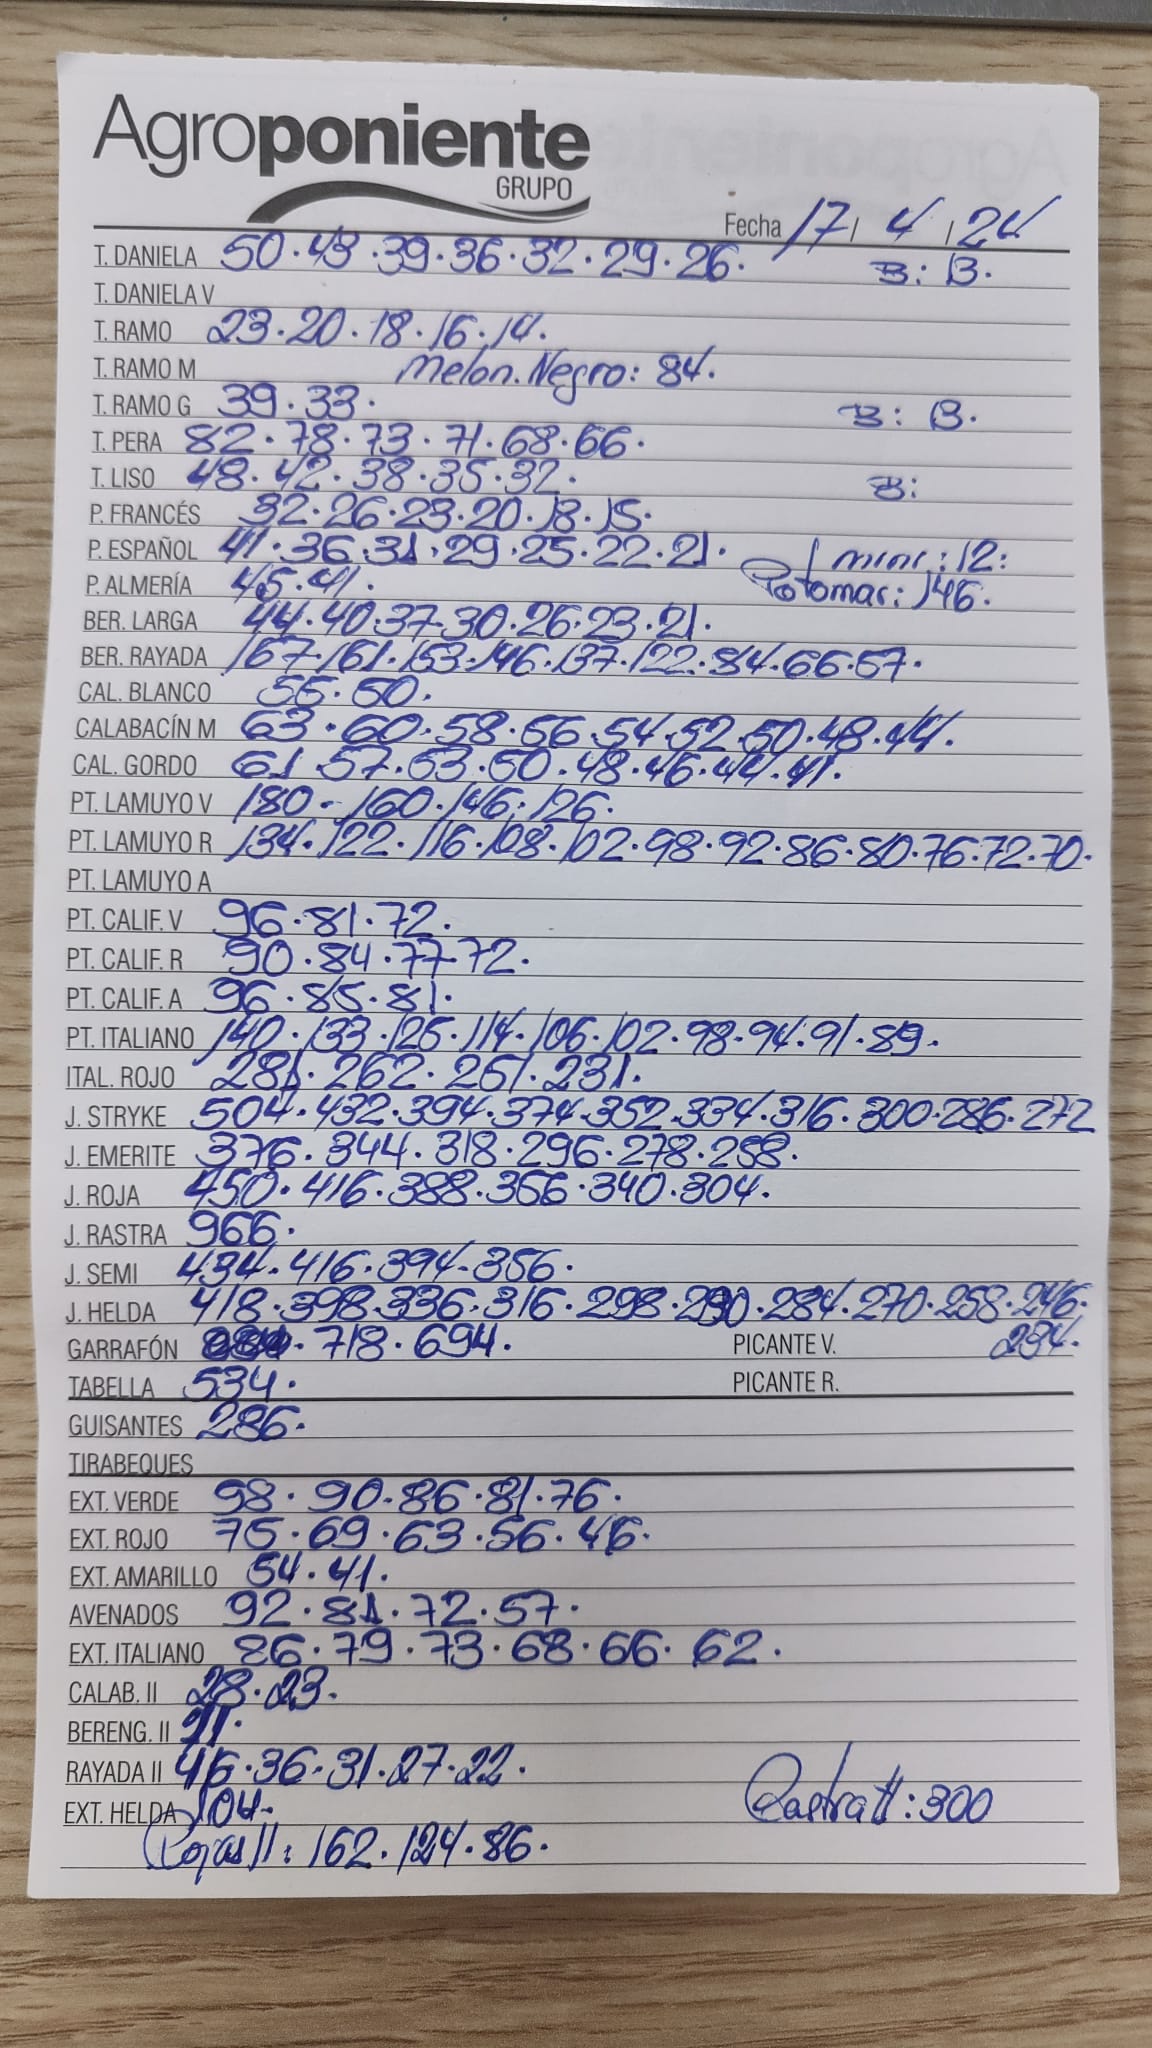 Agroponiente
GRUPO
Fecha 17 / 4 / 24
T. DANIELA 50.43.39.36.32.29.26. B: 13.
T. DANIELA V
T. RAMO 23.20.18.16.14.
T. RAMO M Melon.Negro: 84.
T. RAMO G 39.33. B: 13.
T. PERA 82.78.73.71.68.66.
T. LISO 48.42.38.35.32. B:
P. FRANCÉS 32.26.23.20.18.15.
P. ESPAÑOL 41.36.31.29.25.22.21. mini: 12:
P. ALMERÍA 45.41. Potomac: 146.
BER. LARGA 44.40.37.30.26.23.21.
BER. RAYADA 167.161.153.146.137.122.84.66.57.
CAL. BLANCO 55.50.
CALABACÍN M 63.60.58.56.54.52.50.48.44.
CAL. GORDO 61.57.53.50.48.46.44.41.
PT. LAMUYO V 180.160.146.126.
PT. LAMUYO R 134.122.116.108.102.98.92.86.80.76.72.70.
PT. LAMUYO A
PT. CALIF. V 96.81.72.
PT. CALIF. R 90.84.77.72.
PT. CALIF. A 96.85.81.
PT. ITALIANO 140.133.125.114.106.102.98.94.91.89.
ITAL. ROJO 281.262.251.231.
J. STRYKE 504.432.394.374.352.334.316.300.286.272
J. EMERITE 376.344.318.296.278.258.
J. ROJA 450.416.388.366.340.304.
J. RASTRA 966.
J. SEMI 434.416.394.356.
J. HELDA 418.398.336.316.298.290.284.270.258.246.
GARRAFÓN 718.694. PICANTE V. 234.
TABELLA 534. PICANTE R.
GUISANTES 286.
TIRABEQUES
EXT. VERDE 98.90.86.81.76.
EXT. ROJO 75.69.63.56.46.
EXT. AMARILLO 54.41.
AVENADOS 92.81.72.57.
EXT. ITALIANO 86.79.73.68.66.62.
CALAB. II 28.23.
BERENG. II
RAYADA II 46.36.31.27.22.
EXT. HELDA 104. Rastra II: 300
Rojas II: 162.124.86.